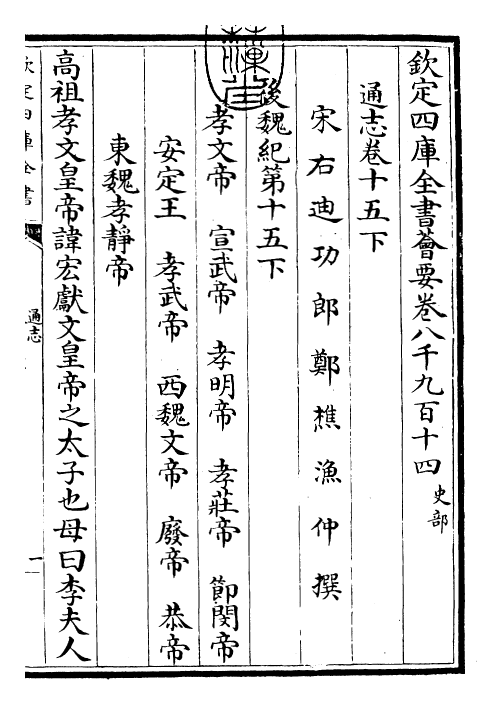 欽定四庫全書薈要卷八千九百十四 史部
通志卷十五下
宋右迪功郎鄭樵漁仲撰
後魏紀第十五下
孝文帝 宣武帝 孝明帝 孝莊帝 節閔帝
安定王 孝武帝 西魏文帝 廢帝 恭帝
東魏孝靜帝
高祖孝文皇帝諱宏獻文皇帝之太子也母曰李夫人
欽定四庫全書
通志
一